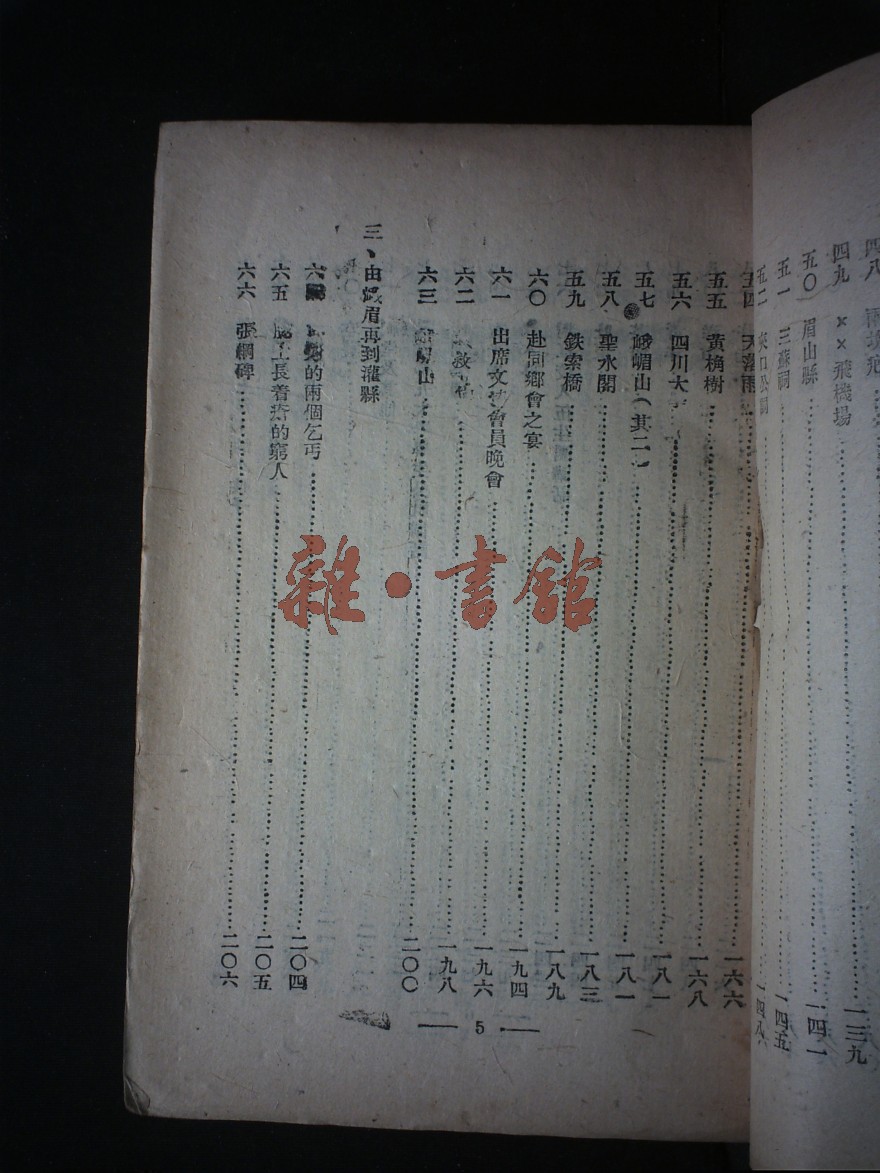 四八
四九 ××飛機場 一三九
五〇 眉山縣 一四一
五一 三蘇祠 一四五
五二 一四八
五四 天落雨 一六六
五五 黃桷樹 一六八
五六 四川大 一八一
五七 峨嵋山(其二) 一八一
五八 聖水閣 一八三
五九 鉄索橋 一八九
六〇 赴同鄉會之宴 一九四
六一 出席文 會員晚會 一九六
六二 一九八
六三 山 二〇〇
三、由峨眉再到灌縣
六 的兩個乞丐 二〇四
六五 上長着 的窮人 二〇五
六六 張綱碑 二〇六
5
雜·書館